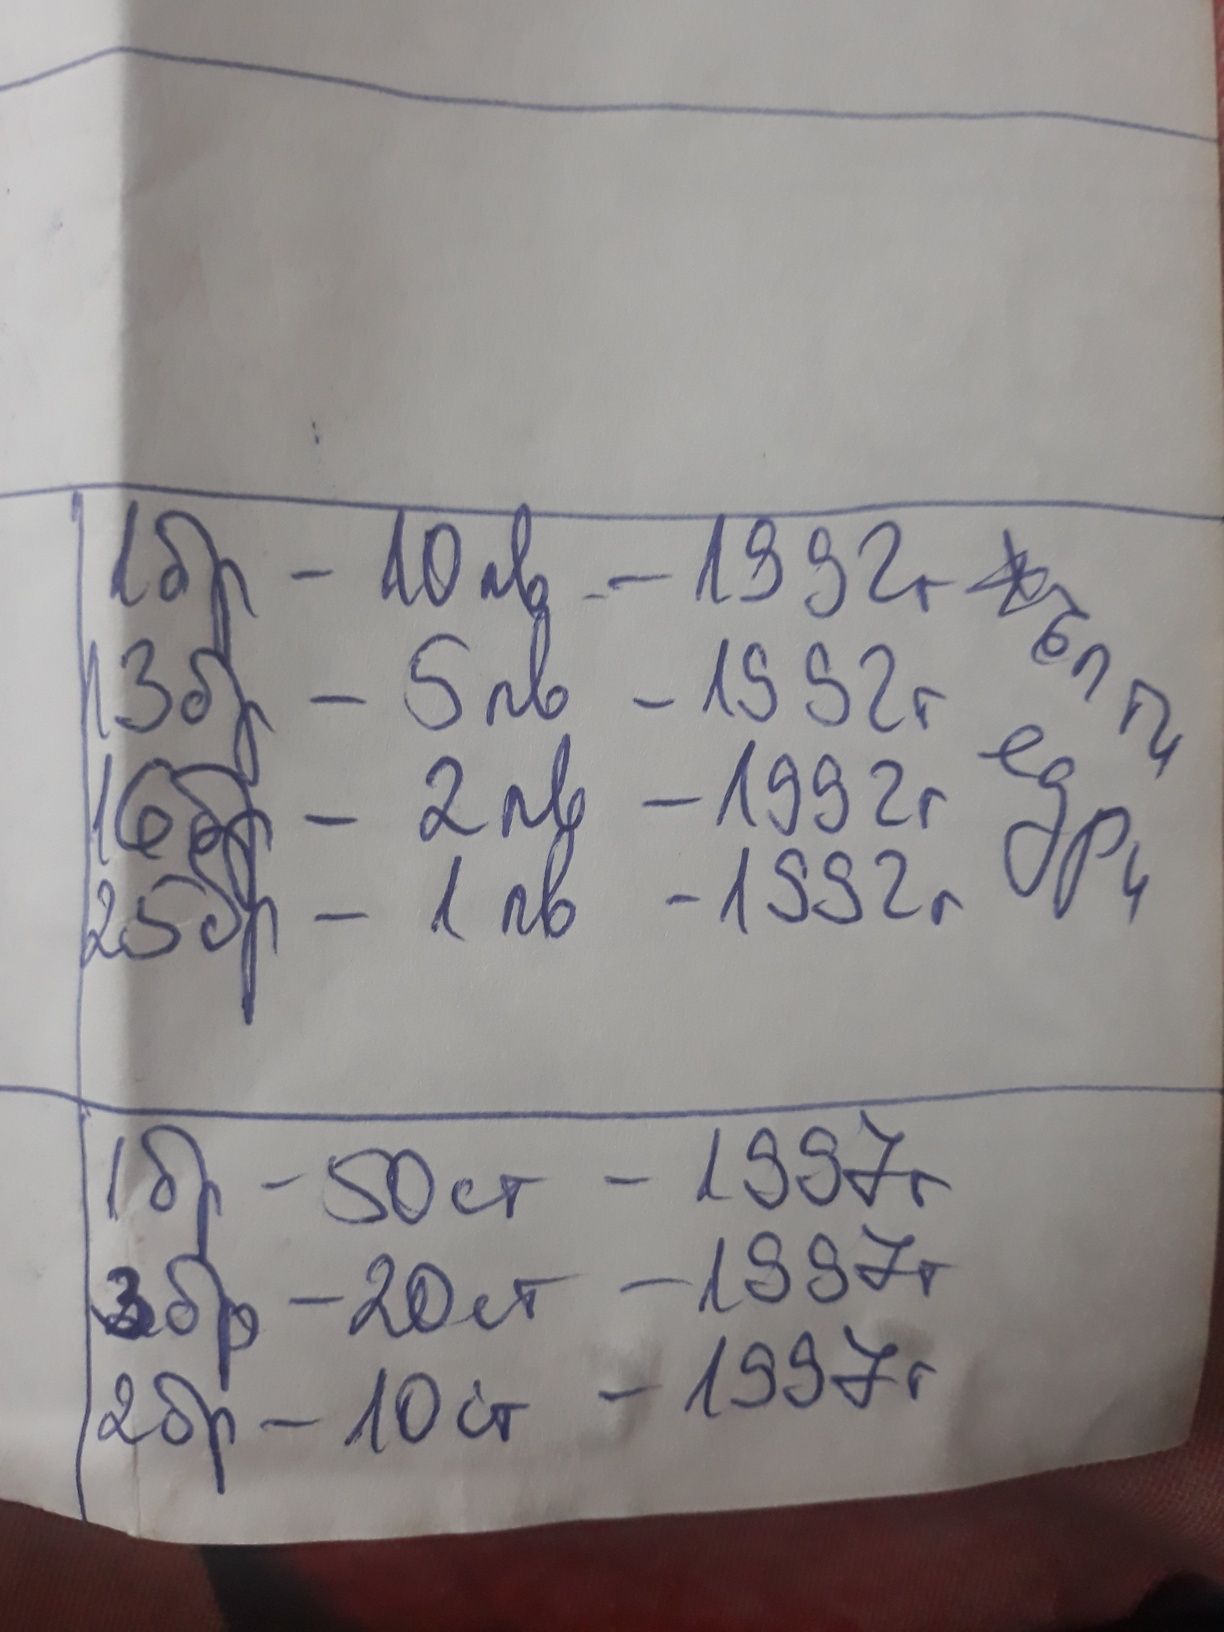 1бр - 10лв - 1992г
13бр - 5лв - 1992г
16бр - 2лв - 1992г
25бр - 1лв - 1992г
жълти
едри
1бр - 50ст - 1997г
3бр - 20ст - 1997г
2бр - 10ст - 1997г